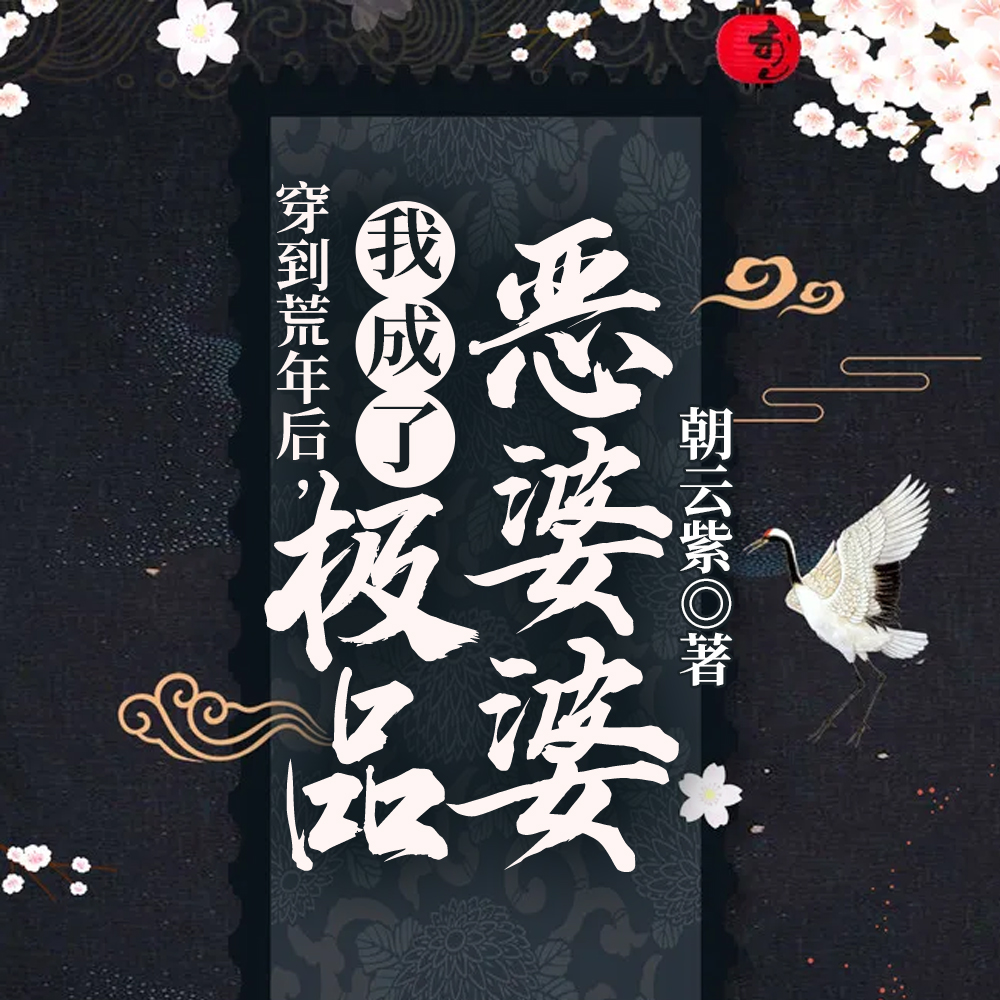 穿到荒年后，
我成了极品
恶婆婆
朝云紫◎著